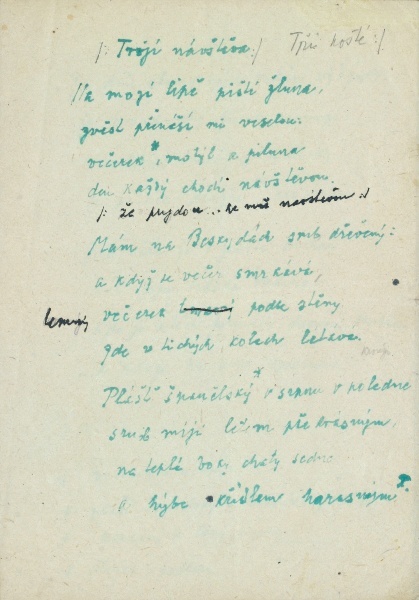 /: Trojí návštěva :/ Tři hosté :/
Na mojí lípě piští žluna,
zvěst přináší mi veselou:
večerek*, motýl a piluna
den každý chodí návštěvou.
/: že přijdou... návštěvou :/
Mám na Beskydách srub dřevěný:
a když se večer smrkává,
lemury večerek podle stěny
jde v tichých kolech letává.
Plášť španělský * v srpnu v poledne
srub míjí letem překrásným,
na teplé boky chaty sedne
a hýbe křídlem harasným